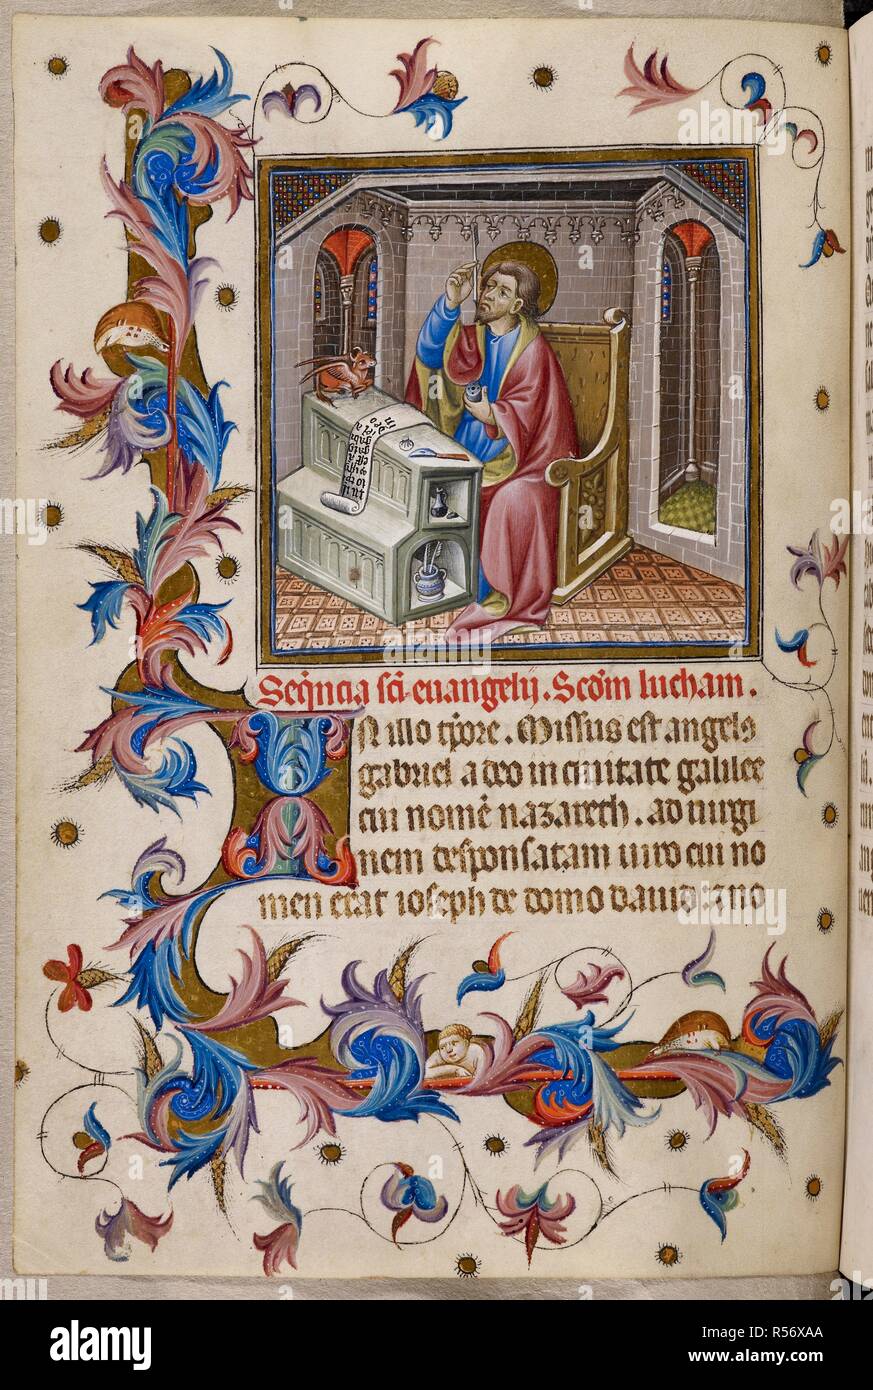 Seq̄ncia sc̄i euangelij. Scd̄m lucham.
IN illo tp̄ore. Missus est angel9
gabriel a deo in ciuitate galilee
cui nomē nazareth. ad uirgi
nem desponsatam uiro cui no
men erat ioseph de domo dauid ⁊ no
alamy
Image ID: R56XAA
www.alamy.com